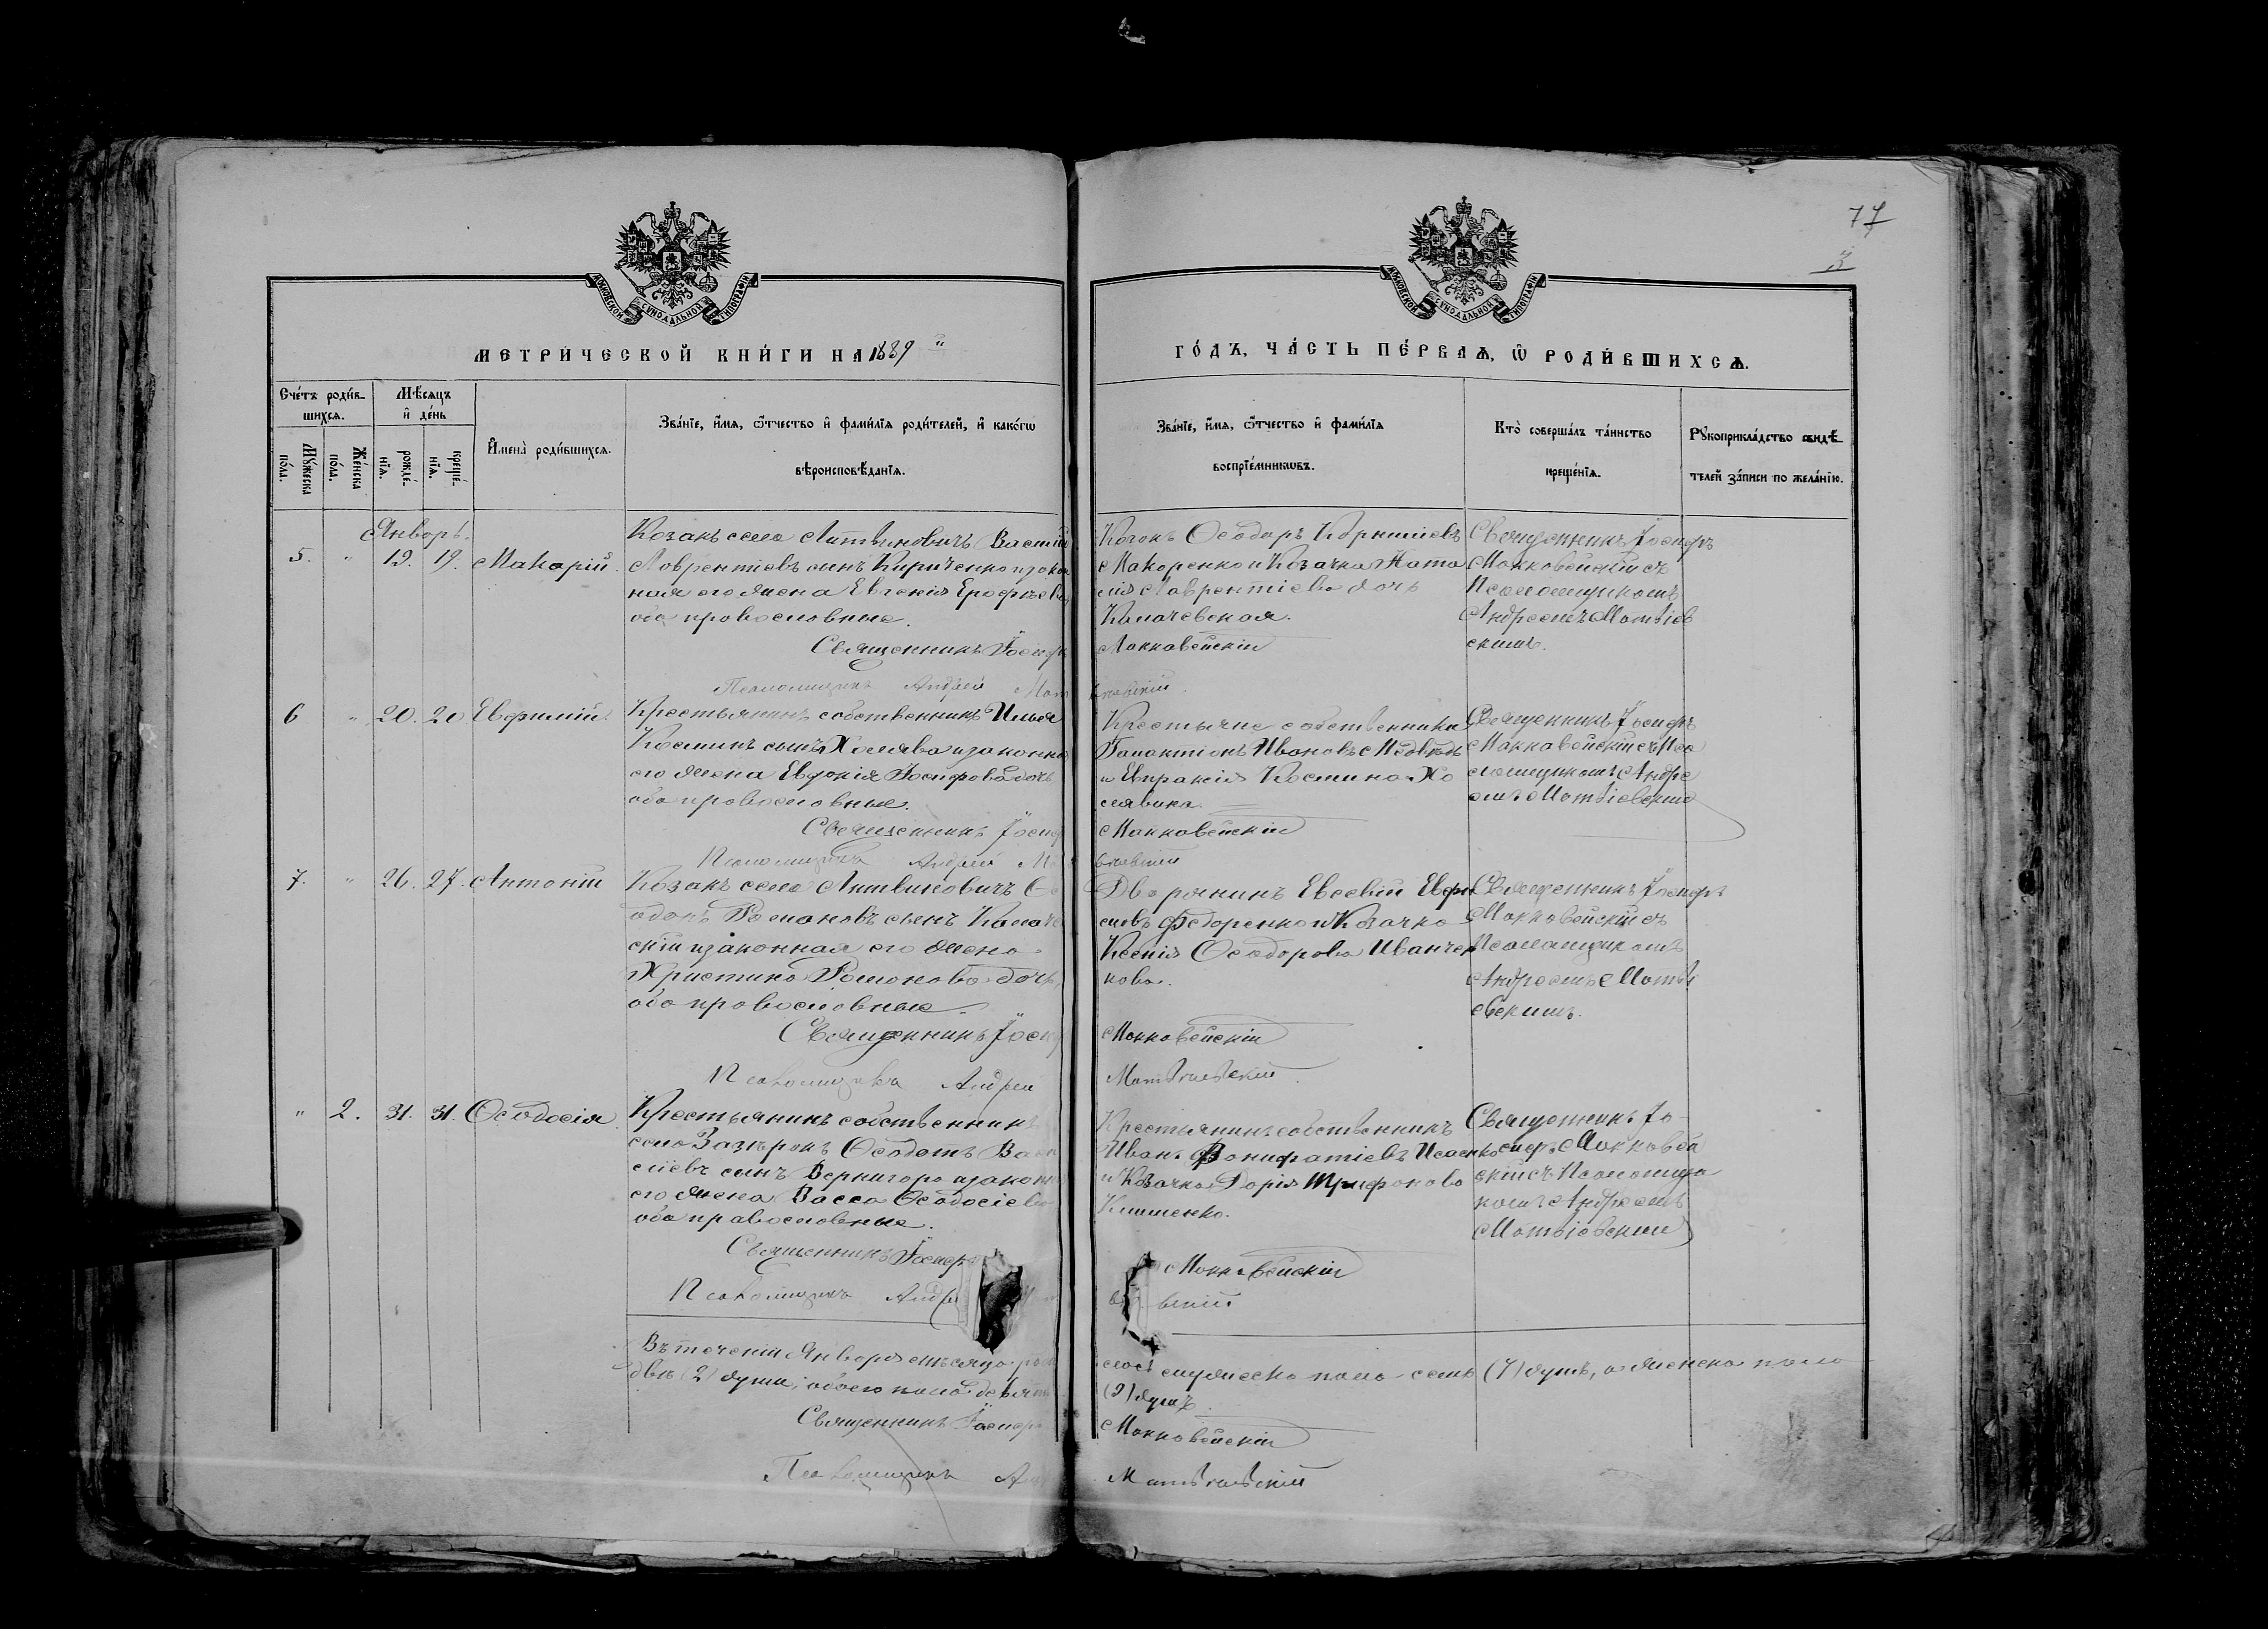 77
3
МОСКОВСКОЙ СѴНОДАЛЬНОЙ ТИПОГРАФІИ
МОСКОВСКОЙ СѴНОДАЛЬНОЙ ТИПОГРАФІИ
МЕТРИ́ЧЕСКОЙ КНИ́ГИ НА 1889
ГО́ДЪ, ЧА́СТЬ ПЕ́РВАѦ, Ѡ҆ РОДИ́ВШИХСѦ.
Сче́тъ роди́в-
шихсѧ.
Мѣ́сѧцъ
и҆ де́нь
Мꙋ́жеска
по́ла.
Же́нска
по́ла.
рожде́-
нїѧ.
креще́-
нїѧ.
И҆мена̀ роди́вшихсѧ.
Зва́нїе, и҆́мѧ, ѻ҆́тчество и҆ фами́лїѧ роди́телей, и҆ како́гѡ
вѣроисповѣ́данїѧ.
Зва́нїе, и҆́мѧ, ѻ҆́тчество и҆ фами́лїѧ
воспрїе́мникѡвъ.
Кто̀ соверша́лъ та́инство
креще́нїѧ.
Рꙋкоприкла́дство свидѣ́-
телей за́писи по жела́нїю.
Январь.
5. " 19. 19. Макарій
Козакъ села Литвиновичъ Василій
Лаврентіевъ сынъ Кириченко и закон
ная его жена Евгенія Ерофѣева
оба православные.
Священникъ Іосифъ
Псаломщикъ Андрей Мат
Козакъ Ѳеодоръ Корниліевъ
Макоренко и Козачка Ната
лія Лаврентіева дочь
Калачевская.
Маккавейскій
ѣевскій
Священникъ Іосифъ
Маккавейскій съ
Псаломщикомъ
Андреемъ Матвіев
скимъ.
6 " 20. 20 Евфимій
Крестьянинъ собственникъ Илья
Косминъ сынъ Холява и законная
его жена Евдокія Іосифова дочь
оба православные.
Священникъ Іосиф
Псаломщикъ Андрей М
Крестьяне собственники
Галактіонъ Ивановъ Медвѣдь
и Евпраксія Космина Хо
лявика.
Маккавейскій
Священникъ Іосифъ
Маккавейскій съ Пса
ломщикомъ Андре
емъ Матвіевскимъ
7. " 26. 27. Антоній
Козакъ села Литвиновичъ Ѳе
одоръ Романовъ сынъ Калаче
скій и законная его жена
Христина Романова дочь,
оба православные.
Священникъ Іосиф
Псаломщикъ Андрей
Дворянинъ Евсевій Евфи
міевъ Федоренко и Козачка
Ксенія Ѳеодорова Иванчен
кова.
Маккавейскій
Матвѣевскій
Священникъ Іосифъ
Маккавейскій съ
Псаломщикомъ
Андреемъ Матві
евскимъ.
" 2. 31. 31. Ѳеодосія
Крестьянинъ собственникъ
села Зазѣрокъ Ѳеодотъ Васи
ліевъ сынъ Вернигора и законн
его жена Васса Ѳеодосіева
оба православные.
Священникъ Іосифъ
Псаломщикъ Андр
Крестьянинъ собственникъ
Иванъ Вонифатіевъ Исаенко
и Козачка Дарія Трифонова
Клименко.
Маккавейскій
Священникъ Іо-
сифъ Маккавей
скій съ Псаломщи
комъ Андреемъ
Матвіевскимъ
Въ теченіи Января мѣсяца роди
лось мужеска пола семь (7) душъ, а женска пола
двѣ (2) души; обоего пола девять
(9) душъ.
Священникъ Іосифъ
Маккавейскій
Псаломщикъ
Матвѣевскій